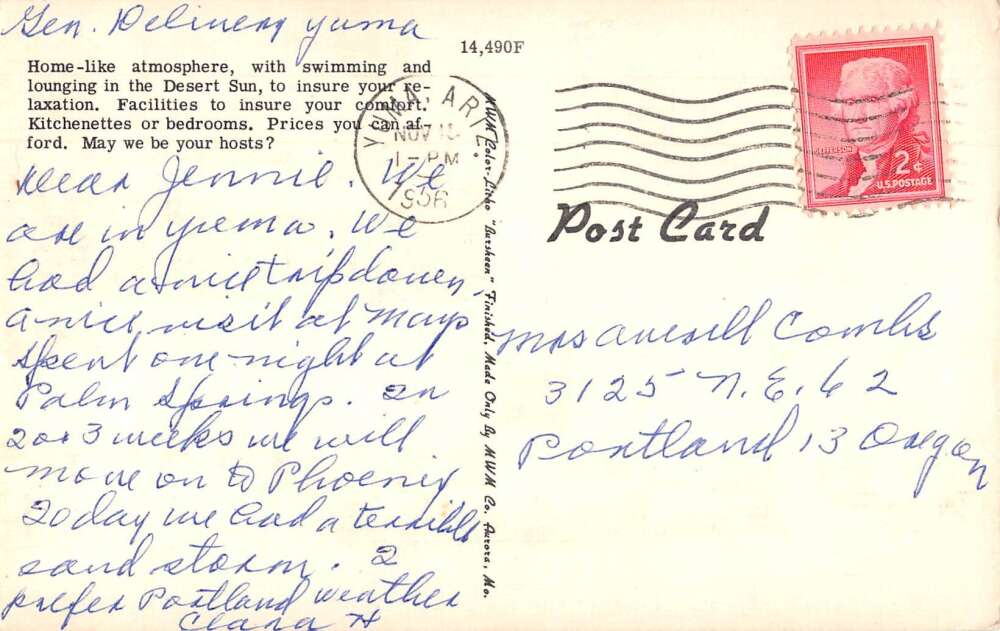 Gen. Delivery Yuma
14,490F
Home-like atmosphere, with swimming and
lounging in the Desert Sun, to insure your re-
laxation. Facilities to insure your comfort.
Kitchenettes or bedrooms. Prices you can af-
ford. May we be your hosts?
YUMA, ARIZ.
NOV 15
1-PM
1956
JEFFERSON
2¢
U.S. POSTAGE
Post Card
Dear Jennie. We
are in yuma. We
had a nice trip down,
a nice visit at Mays
spent one night at
Palm Springs. In
2 or 3 weeks we will
move on to Phoenix
Today we had a terrible
sand storm. I
prefer Portland weather
Clara H
MWM Color-Litho "Bursheen" Finished, Made Only By MWM Co. Aurora, Mo.
Mrs Averill Combs
3125 N.E. 62
Portland 13 Oregon